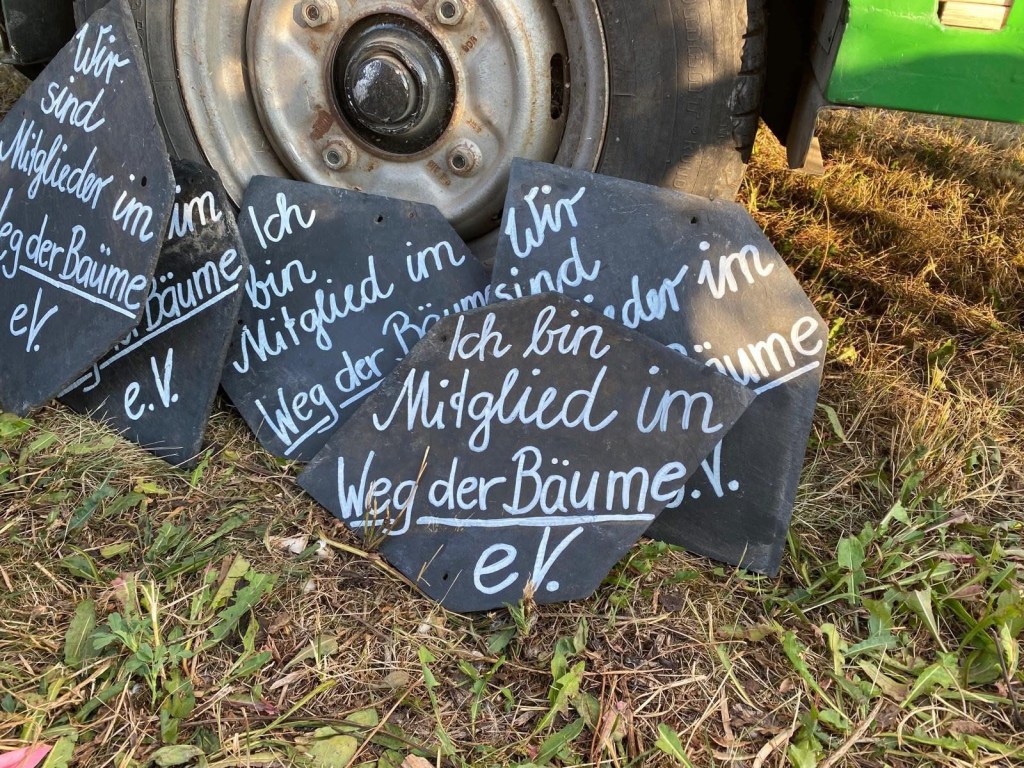 Wir
sind
Mitglieder im
Weg der Bäume
eV.
im
Bäume
e.V.
Ich
bin
Mitglied im
Weg der Bäume
Wir
sind
ieder im
äume
.V.
Ich bin
Mitglied im
Weg der Bäume
e.V.